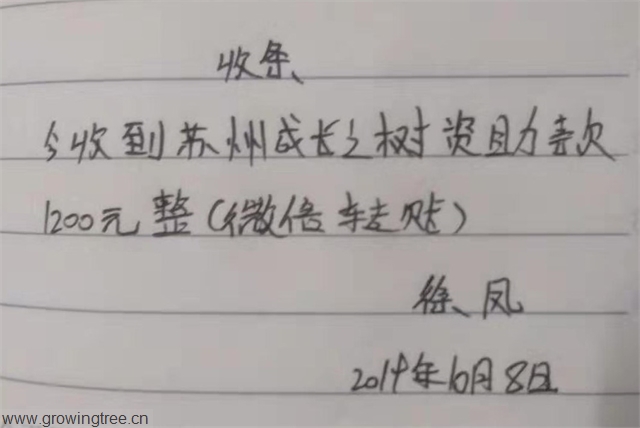 收条
今收到苏州成长之树资助款
1200元整(微信转账)
徐凤
2019年10月8日
www.growingtree.cn